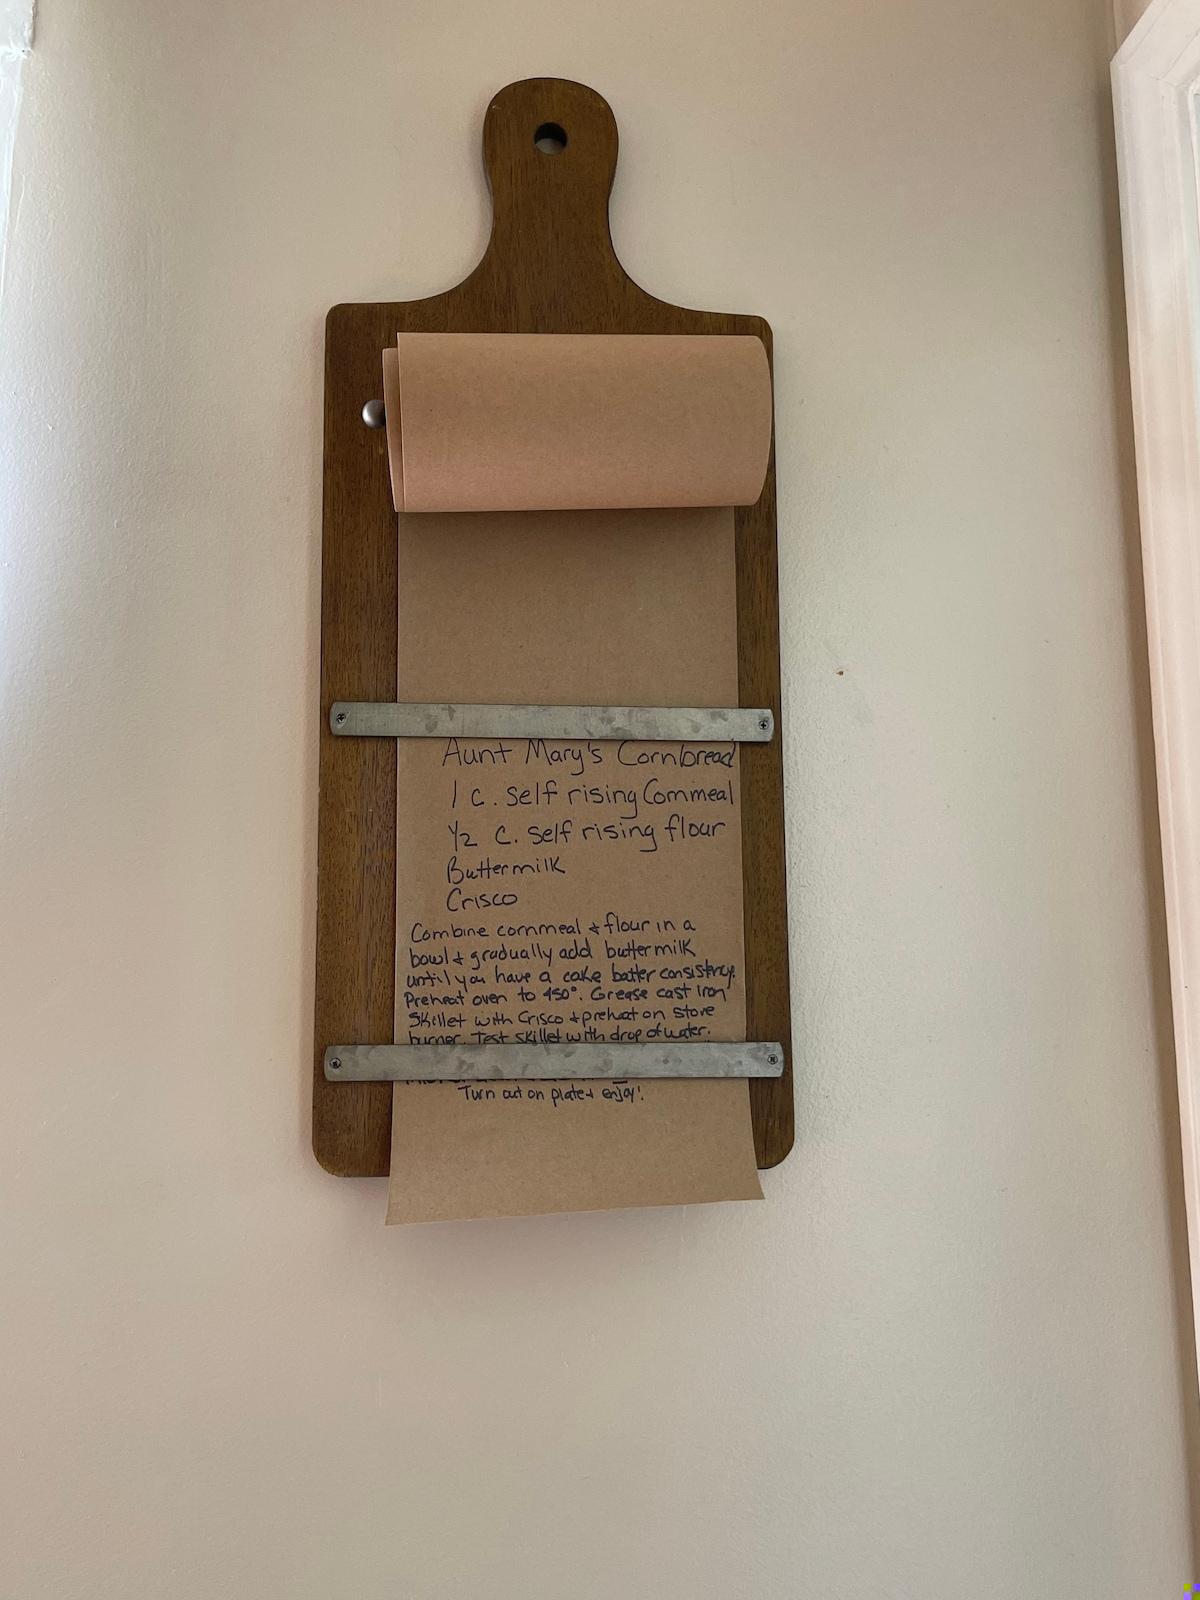 Aunt Mary's Cornbread
1 c. self rising Cornmeal
1/2 c. self rising flour
Buttermilk
Crisco
Combine cornmeal & flour in a
bowl & gradually add buttermilk
until you have a cake batter consistency.
Preheat oven to 450°. Grease cast iron
Skillet with Crisco & preheat on stove
burner. Test skillet with drop of water.
Turn out on plate & enjoy!